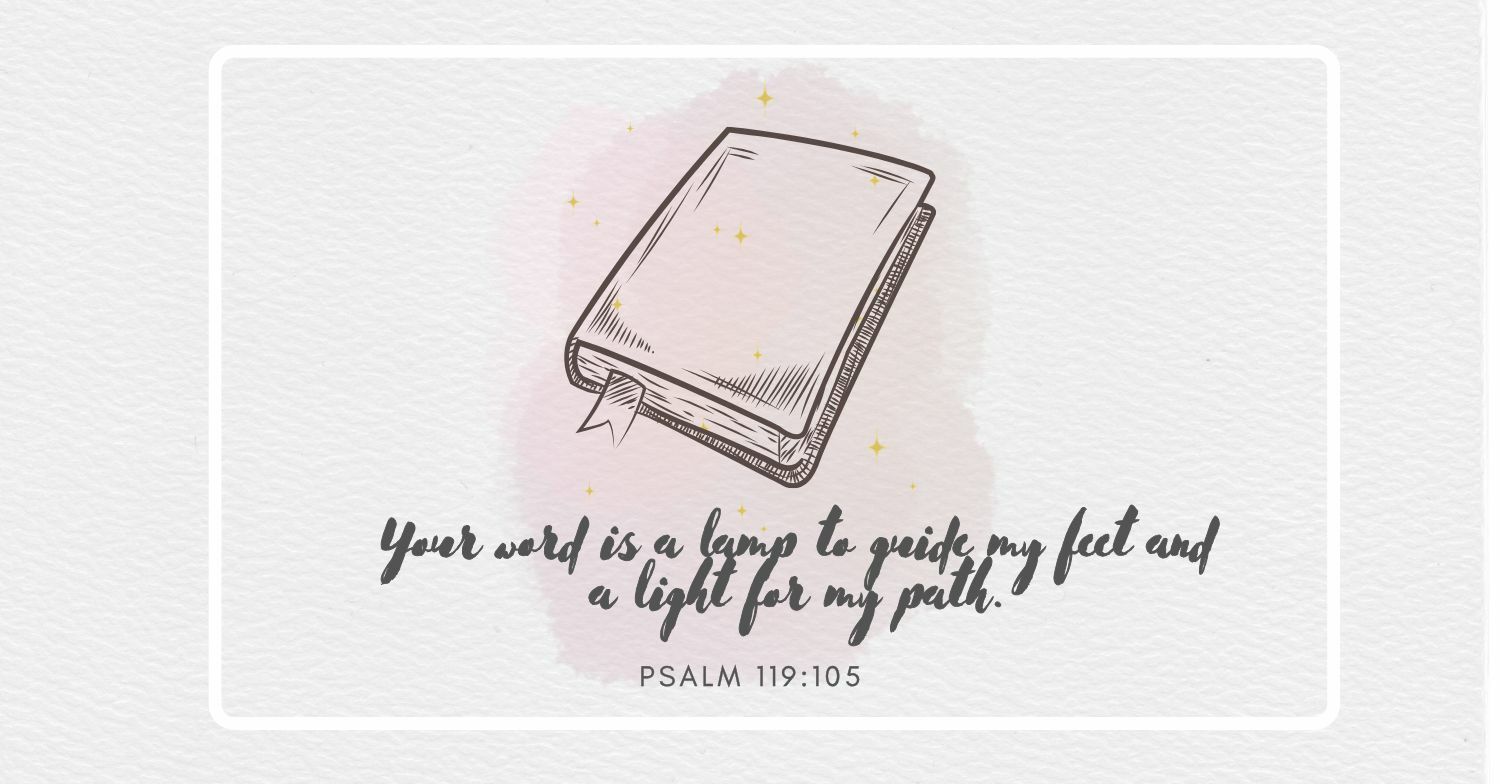 Your word is a lamp to guide my feet and
a light for my path.
PSALM 119:105